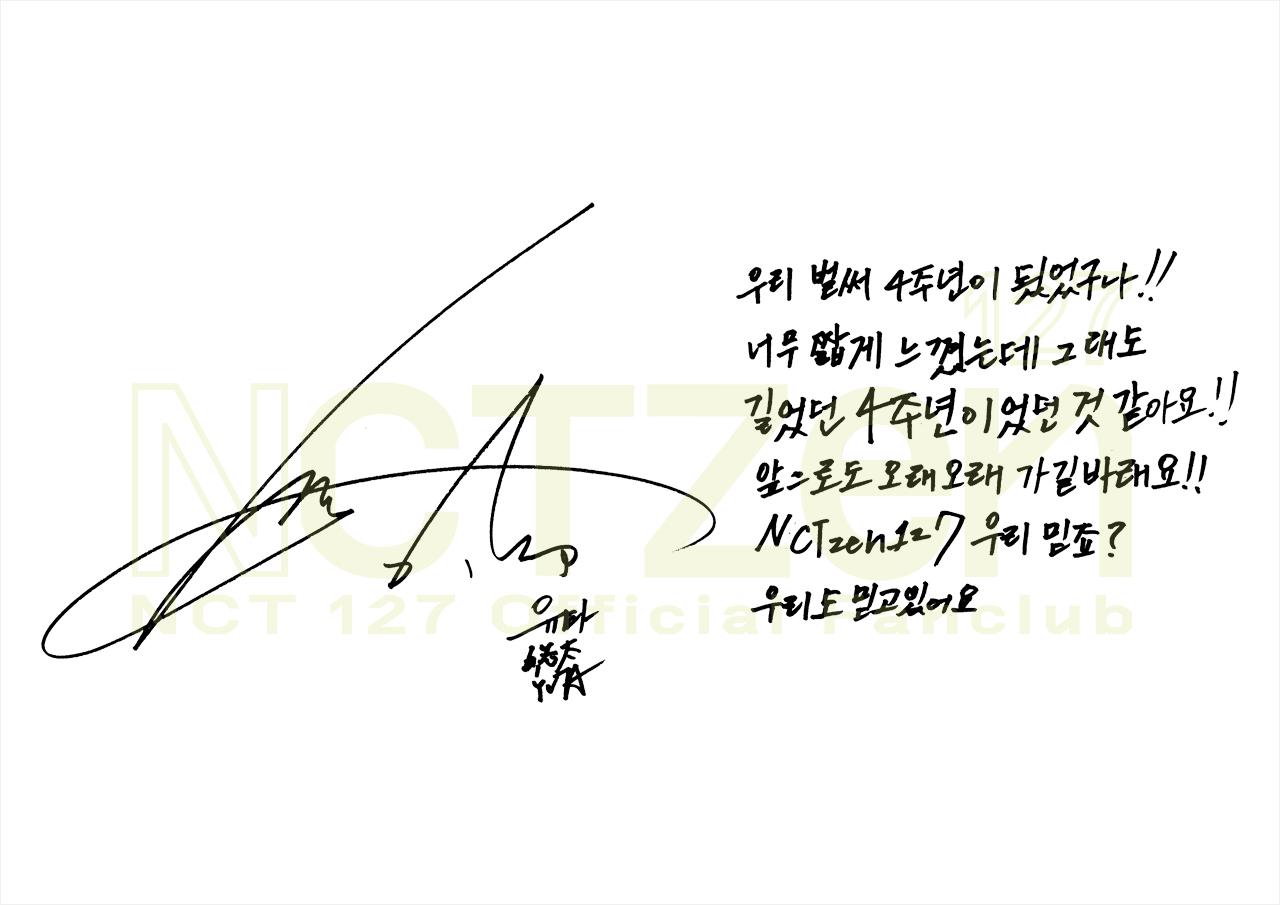 우리 벌써 4주년이 됬었구나!!
너무 짧게 느꼈는데 그래도
길었던 4주년이었던 것 같아요!!
앞으로도 오래오래 가길바래요!!
NCTzen127 우리 믿죠?
우리도 믿고있어요
유타
YUTA
127
NCTzen
NCT 127 Official Fanclub